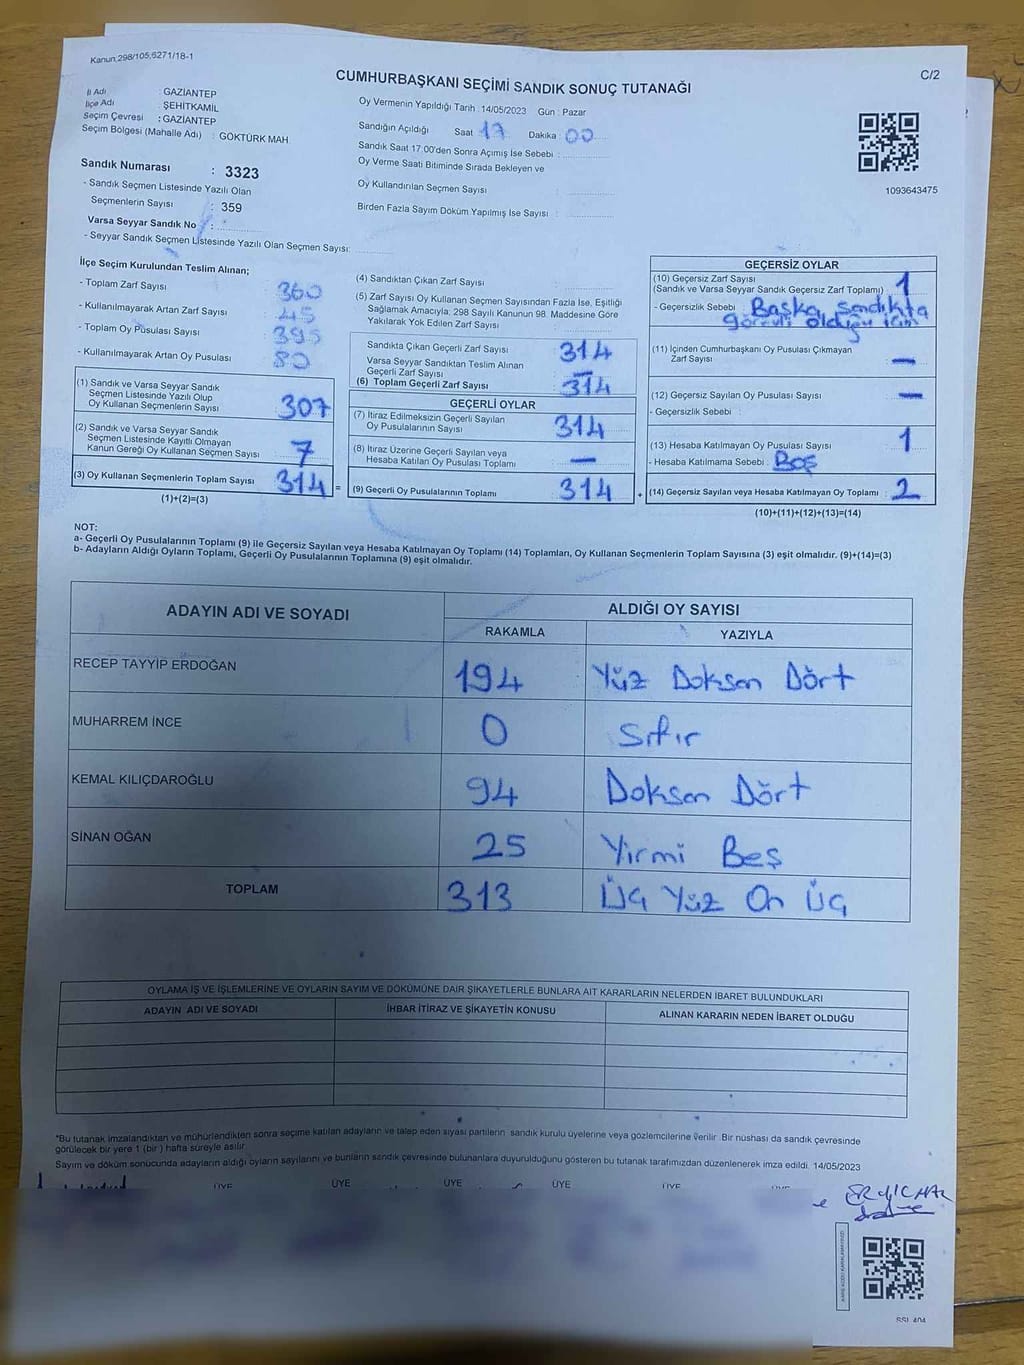 Kanun;298/105;6271/18-1
C/2
CUMHURBAŞKANI SEÇİMİ SANDIK SONUÇ TUTANAĞI
İl Adı : GAZİANTEP
İlçe Adı : ŞEHİTKAMİL
Seçim Çevresi : GAZİANTEP
Seçim Bölgesi (Mahalle Adı) : GÖKTÜRK MAH
Sandık Numarası : 3323
- Sandık Seçmen Listesinde Yazılı Olan
Seçmenlerin Sayısı : 359
Varsa Seyyar Sandık No :
- Seyyar Sandık Seçmen Listesinde Yazılı Olan Seçmen Sayısı:
Oy Vermenin Yapıldığı Tarih : 14/05/2023 Gün : Pazar
Sandığın Açıldığı Saat 17 Dakika 00
Sandık Saat 17:00'den Sonra Açımış İse Sebebi :
Oy Verme Saati Bitiminde Sırada Bekleyen ve
Oy Kullandırılan Seçmen Sayısı
Birden Fazla Sayım Döküm Yapılmış İse Sayısı :
1093643475
İlçe Seçim Kurulundan Teslim Alınan;
- Toplam Zarf Sayısı 360
- Kullanılmayarak Artan Zarf Sayısı 45
- Toplam Oy Pusulası Sayısı 395
- Kullanılmayarak Artan Oy Pusulası 80
(1) Sandık ve Varsa Seyyar Sandık
Seçmen Listesinde Yazılı Olup
Oy Kullanan Seçmenlerin Sayısı 307
(2) Sandık ve Varsa Seyyar Sandık
Seçmen Listesinde Kayıtlı Olmayan
Kanun Gereği Oy Kullanan Seçmen Sayısı 7
(3) Oy Kullanan Seçmenlerin Toplam Sayısı 314 =
(1)+(2)=(3)
(4) Sandıktan Çıkan Zarf Sayısı :
(5) Zarf Sayısı Oy Kullanan Seçmen Sayısından Fazla İse, Eşitliği
Sağlamak Amacıyla, 298 Sayılı Kanunun 98. Maddesine Göre
Yakılarak Yok Edilen Zarf Sayısı :
Sandıkta Çıkan Geçerli Zarf Sayısı 314
Varsa Seyyar Sandıktan Teslim Alınan
Geçerli Zarf Sayısı —
(6) Toplam Geçerli Zarf Sayısı 314
GEÇERLİ OYLAR
(7) İtiraz Edilmeksizin Geçerli Sayılan
Oy Pusulalarının Sayısı 314
(8) İtiraz Üzerine Geçerli Sayılan veya
Hesaba Katılan Oy Pusulası Toplamı —
(9) Geçerli Oy Pusulalarının Toplamı 314 +
GEÇERSİZ OYLAR
(10) Geçersiz Zarf Sayısı 1
(Sandık ve Varsa Seyyar Sandık Geçersiz Zarf Toplamı)
- Geçersizlik Sebebi : Başka sandıkta
görevli olduğu için
(11) İçinden Cumhurbaşkanı Oy Pusulası Çıkmayan
Zarf Sayısı —
(12) Geçersiz Sayılan Oy Pusulası Sayısı —
- Geçersizlik Sebebi :
(13) Hesaba Katılmayan Oy Pusulası Sayısı 1
- Hesaba Katılmama Sebebi : Boş
(14) Geçersiz Sayılan veya Hesaba Katılmayan Oy Toplamı : 2
(10)+(11)+(12)+(13)=(14)
NOT:
a- Geçerli Oy Pusulalarının Toplamı (9) ile Geçersiz Sayılan veya Hesaba Katılmayan Oy Toplamı (14) Toplamları, Oy Kullanan Seçmenlerin Toplam Sayısına (3) eşit olmalıdır. (9)+(14)=(3)
b- Adayların Aldığı Oyların Toplamı, Geçerli Oy Pusulalarının Toplamına (9) eşit olmalıdır.
ADAYIN ADI VE SOYADI ALDIĞI OY SAYISI
RAKAMLA YAZIYLA
RECEP TAYYİP ERDOĞAN 194 Yüz Doksan Dört
MUHARREM İNCE 0 Sıfır
KEMAL KILIÇDAROĞLU 94 Doksan Dört
SİNAN OĞAN 25 Yirmi Beş
TOPLAM 313 Üç Yüz On Üç
OYLAMA İŞ VE İŞLEMLERİNE VE OYLARIN SAYIM VE DÖKÜMÜNE DAİR ŞİKAYETLERLE BUNLARA AİT KARARLARIN NELERDEN İBARET BULUNDUKLARI
ADAYIN ADI VE SOYADI İHBAR İTİRAZ VE ŞİKAYETİN KONUSU ALINAN KARARIN NEDEN İBARET OLDUĞU
*Bu tutanak imzalandıktan ve mühürlendikten sonra seçime katılan adayların ve talep eden siyasi partilerin sandık kurulu üyelerine veya gözlemcilerine verilir. Bir nüshası da sandık çevresinde
görülecek bir yere 1 (bir ) hafta süreyle asılır.
Sayım ve döküm sonucunda adayların aldığı oyların sayılarını ve bunların sandık çevresinde bulunanlara duyurulduğunu gösteren bu tutanak tarafımızdan düzenlenerek imza edildi. 14/05/2023
ÜYE ÜYE ÜYE ÜYE ÜYE
SSI 404